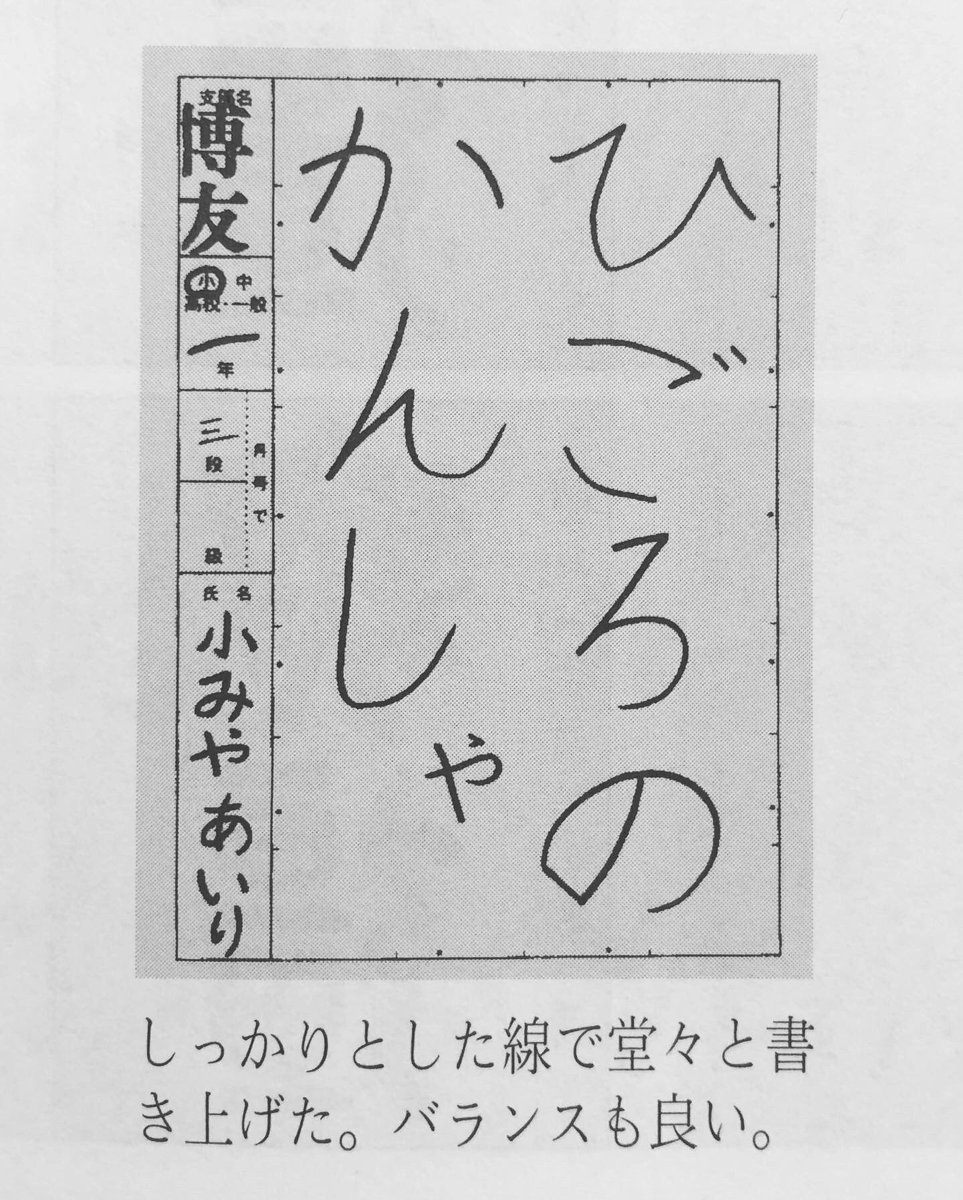 ひごろの
かんしゃ
支部名
博友
小 中
高校・一般
一年
三段
級
月号で
氏名
小みや あいり
しっかりとした線で堂々と書
き上げた。バランスも良い。